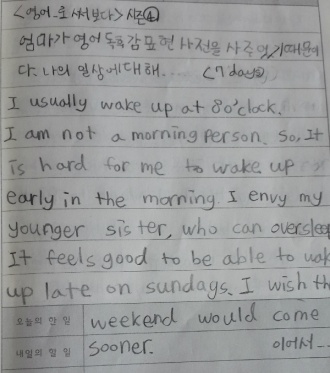 <영어로 써보다> 시즌④
엄마가 영어 독후감 표현 사전을 사주었기때문이
다. 나의 일상에대해... <7days>
I usually wake up at 8o'clock.
I am not a morning person. So, It
is hard for me to wake up
early in the morning. I envy my
younger sister, who can oversleep
It feels good to be able to wak
up late on sundays. I wish th
오늘의 한 일 weekend would come
내일의 할 일 sooner. 이어서...